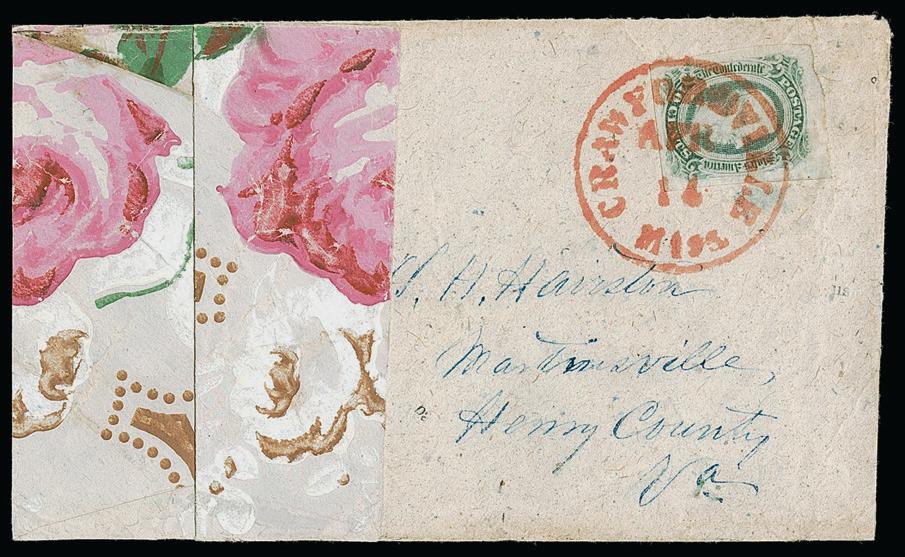 CRAWFORDSVILLE
14
MISS.
The Confederate
States of America
POSTAGE
S. H. Hairston
Martinsville,
Henry County
Va